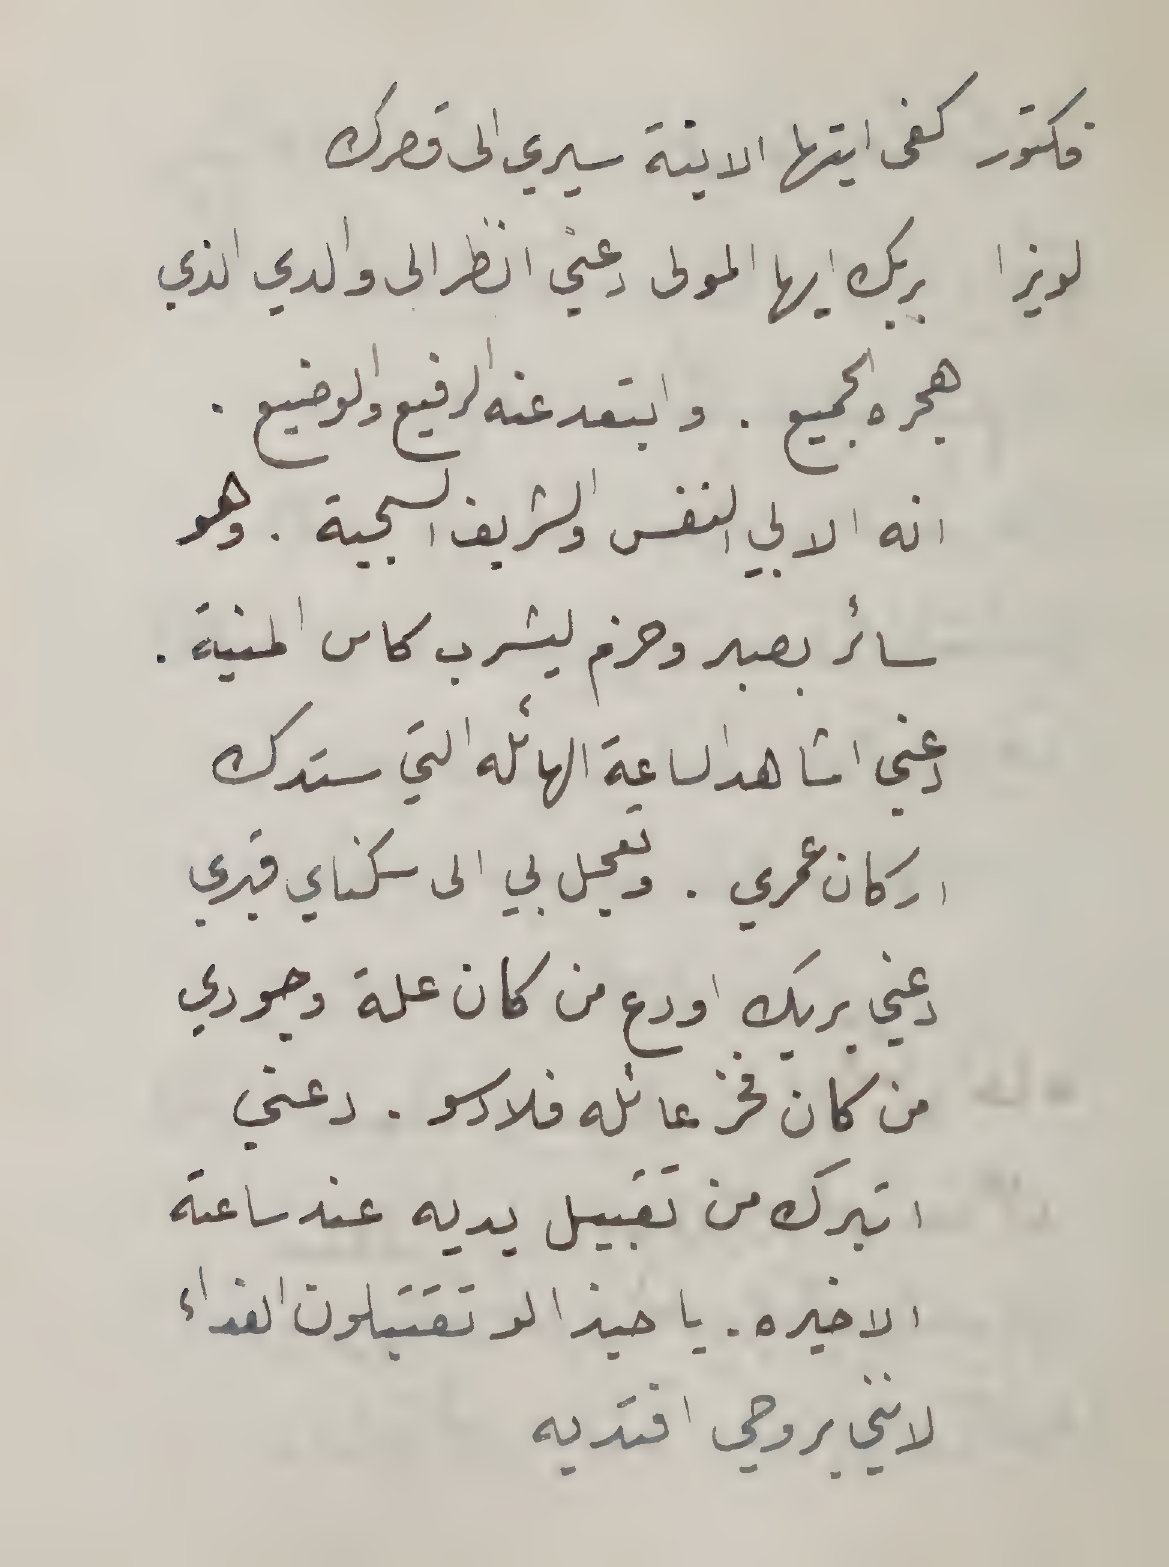 فكتور كفى ايتها الابنة سيري الى قصرك
لويزا بربك ايها المولى دعني انظر الى والدي الذي
هجره الجميع . وابتعد عنه الرفيع والوضيع .
انه الابي النفس والشريف السجية . وهو
سائر بصبر وحزم ليشرب كاس المنية .
دعني اشاهد الساعة الهائله التي ستدك
اركان عمري . وتعجل بي الى سكناي قبري
دعني بربك اودع من كان علة وجودي
من كان فخر عائله فلادسو . دعني
اتبرك من تقبيل يديه عند ساعته
الاخيره . يا حبذا لو تقتبلون الفداء
لانني بروحي افتديه